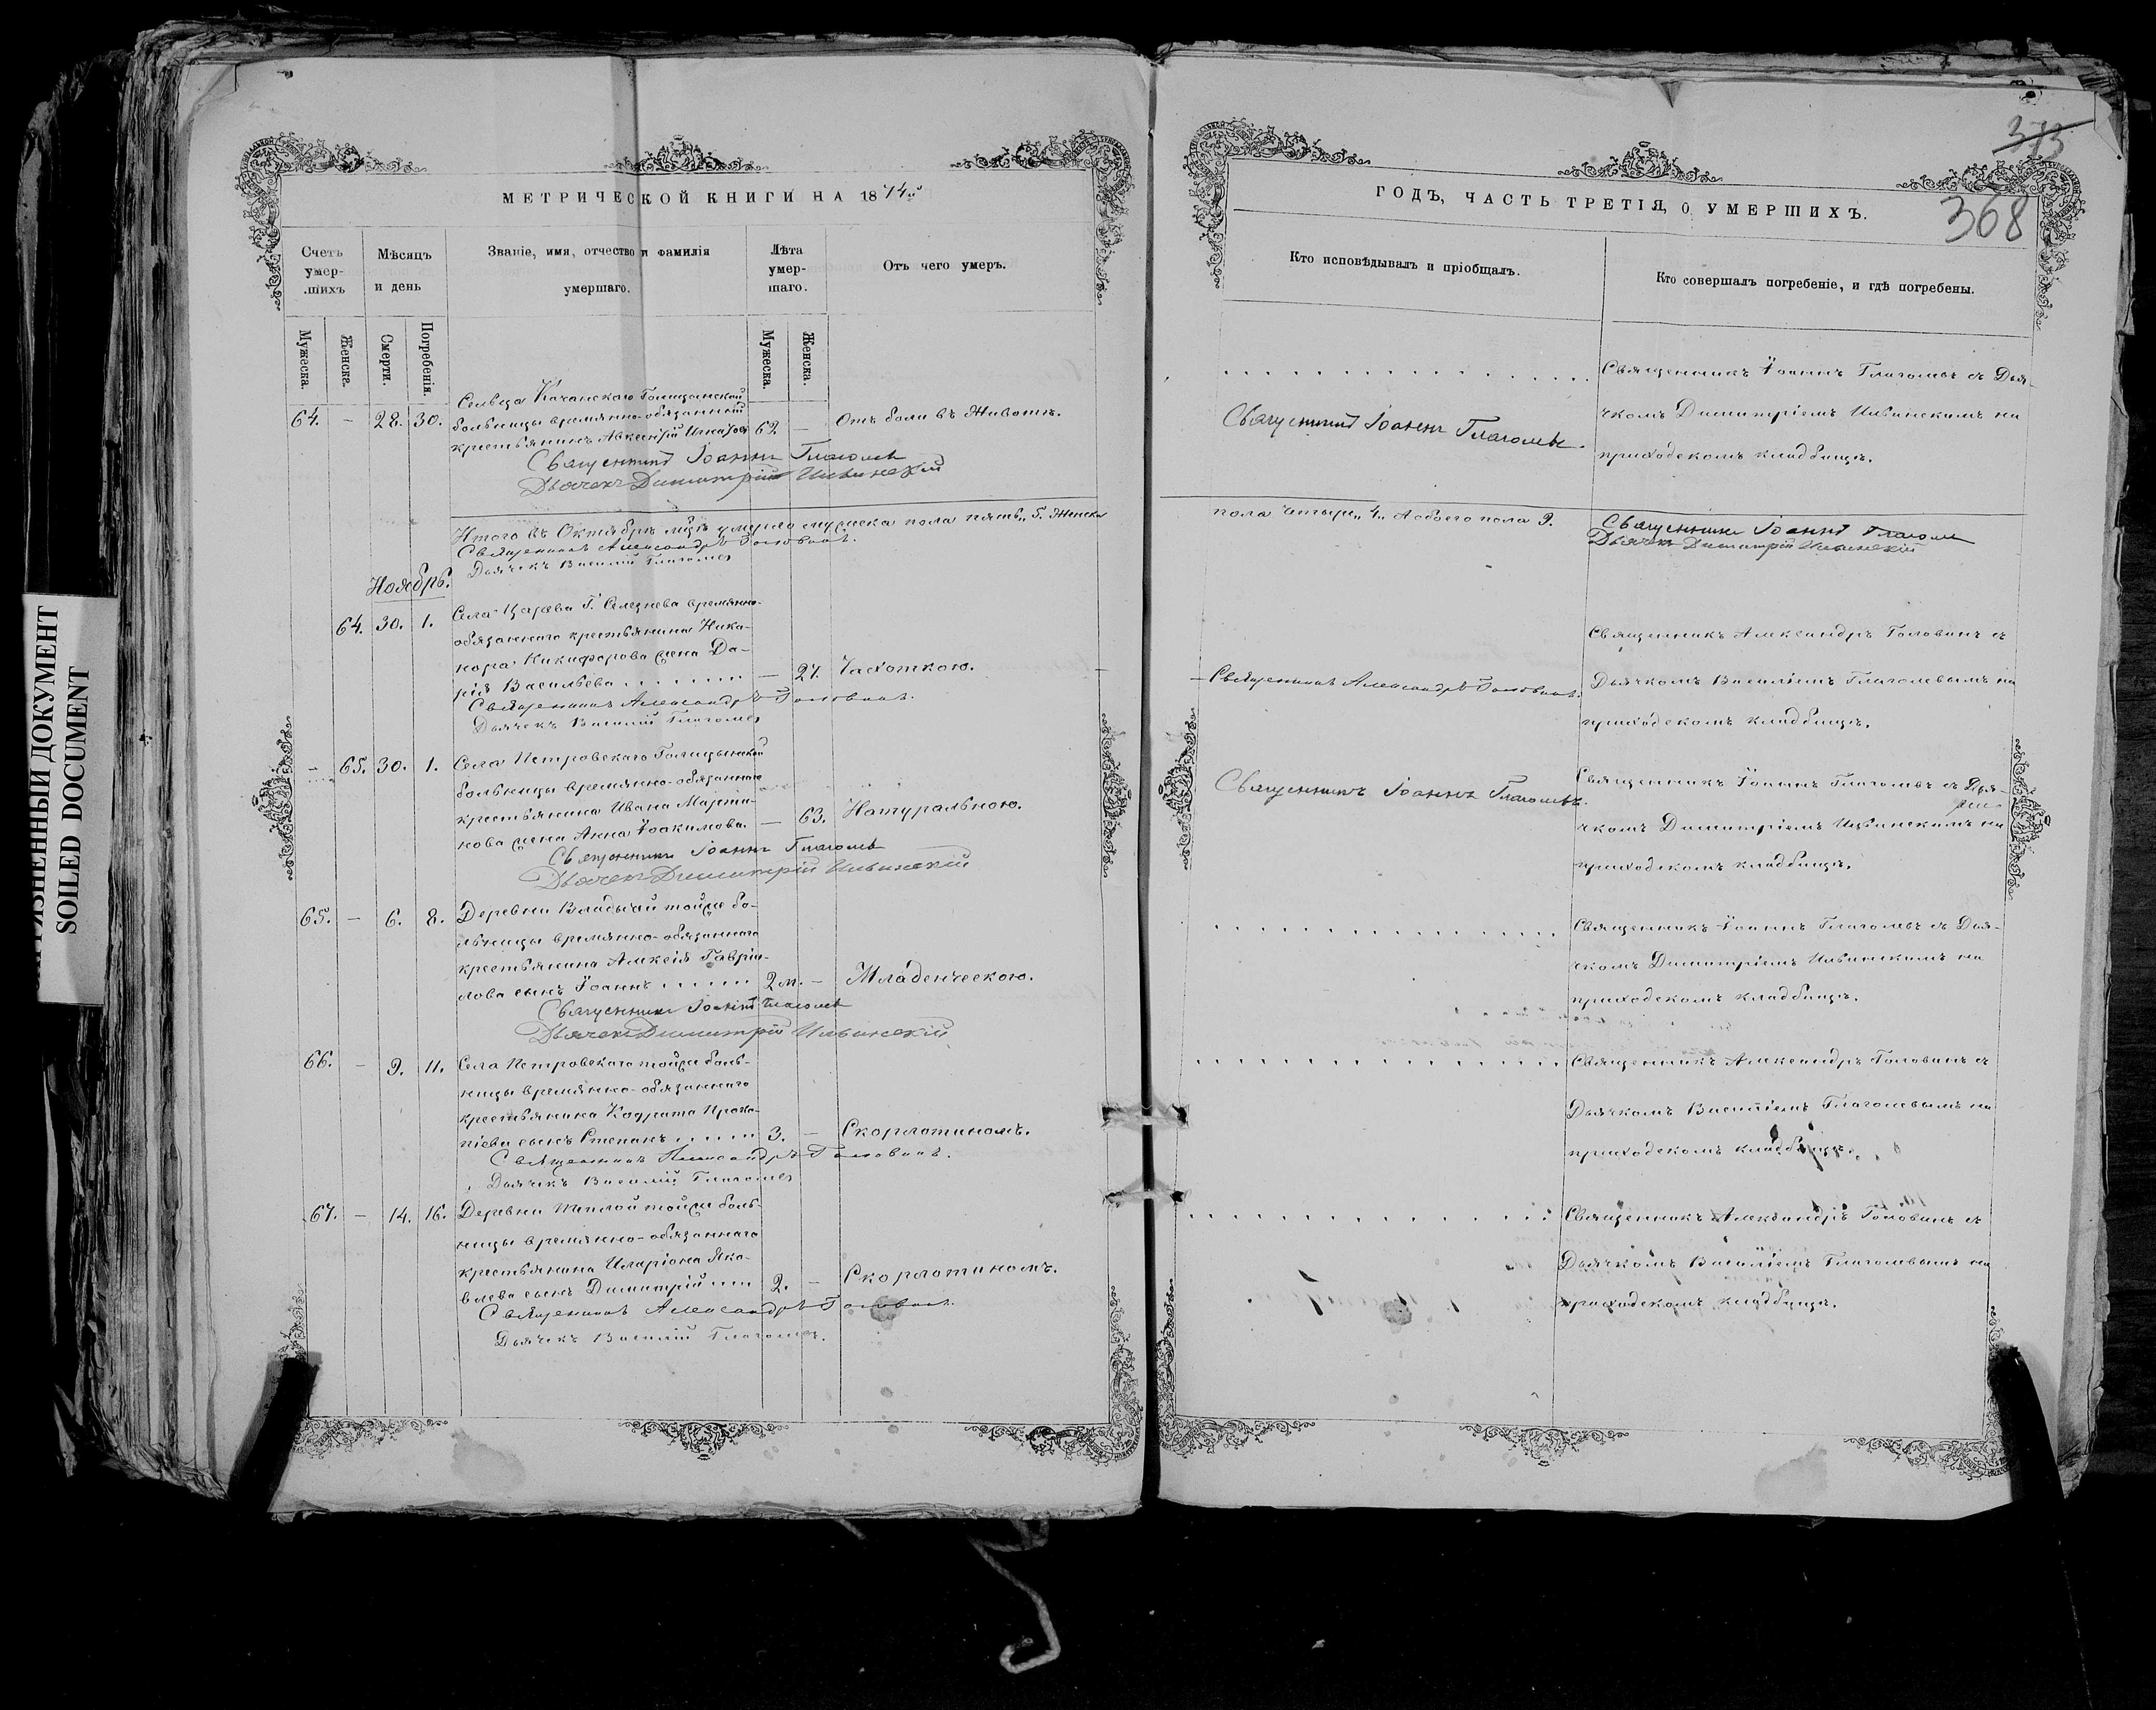 ЗАГРЯЗНЕННЫЙ ДОКУМЕНТ
SOILED DOCUMENT
МЕТРИЧЕСКОЙ КНИГИ НА 1874й
Счетъ умер-шихъ
Мѣсяцъ и день
Званіе, имя, отчество и фамилія умершаго.
Лѣта умер-шаго.
Отъ чего умеръ.
Мужеска.
Женска.
Смерти.
Погребенія.
Мужеска.
Женска.
Сельца Качанскаго Голицынской
64. – 28. 30. больницы временно-обязанный 62 – Отъ боли въ животѣ.
крестьянинъ
Священникъ Іоаннъ Глаголевъ
Дьячекъ Димитрій Ильинскій
Итого въ Октябрѣ м̃цѣ умерло мужеска пола пять„ 5. Женска
Священникъ Александръ Головинъ.
Дьячекъ Василій Глаголевъ
Ноябрь.
64. 30. 1. Села Царева Г. Селезнева временно-
обязаннаго крестьянина Ника-
нора Никифорова жена Да-
рія Васильева . . . . . . . . — 27. Чахоткою.
Священникъ Александръ Головинъ.
Дьячекъ Василій Глаголевъ
– 65. 30. 1. Села Петровскаго Голицынской
больницы временно-обязаннаго
крестьянина Ивана Марти-
нова жена Анна Іоакимова. — 63. Натуральною.
Священникъ Іоаннъ Глаголевъ
Дьячекъ Димитрій Ильинскій
65. – 6. 8. Деревни Владычни тойже бо-
льницы временно-обязаннаго
крестьянина Алексія Гаврі-
лова сынъ Іоаннъ . . . . . . 2 м. – Младенческою.
Священникъ Іоаннъ Глаголевъ
Дьячекъ Димитрій Ильинскій
66. – 9. 11. Села Петровскаго тойже боль-
ницы временно-обязаннаго
крестьянина Кодрата Проко-
піева сынъ Стефанъ . . . . . . 3. – Скорлотиномъ.
Священникъ Александръ Головинъ.
Дьячекъ Василій Глаголевъ
67. – 14. 16. Деревни Теплой тойже боль-
ницы временно-обязаннаго
крестьянина Иларіона Яко-
влева сынъ Димитрій . . . . 2. – Скорлотиномъ.
Священникъ Александръ Головинъ.
Дьячекъ Василій Глаголевъ.
373
368
ГОДЪ, ЧАСТЬ ТРЕТІЯ, О УМЕРШИХЪ.
Кто исповѣдывалъ и пріобщалъ.
Кто совершалъ погребеніе, и гдѣ погребены.
Священникъ Іоаннъ Глаголевъ съ Дья-
Священникъ Іоаннъ Глаголевъ.
чкомъ Димитріемъ Ильинскимъ на
приходскомъ кладбищѣ.
пола четыре„ 4„ А обоего пола 9.
Священникъ Іоаннъ Глаголевъ
Дьячекъ Димитрій Ильинскій
Священникъ Александръ Головинъ съ
Священникъ Александръ Головинъ.
Дьячкомъ Василіемъ Глаголевымъ на
приходскомъ кладбищѣ.
Священникъ Іоаннъ Глаголевъ съ Дья-
Священникъ Іоаннъ Глаголевъ.
чкомъ Димитріемъ Ильинскимъ на
приходскомъ кладбищѣ.
Священникъ Іоаннъ Глаголевъ съ Дья-
чкомъ Димитріемъ Ильинскимъ на
приходскомъ кладбищѣ.
Священникъ Александръ Головинъ съ
Дьячкомъ Василіемъ Глаголевымъ на
приходскомъ кладбищѣ.
Священникъ Александръ Головинъ съ
Дьячкомъ Василіемъ Глаголевымъ на
приходскомъ кладбищѣ.